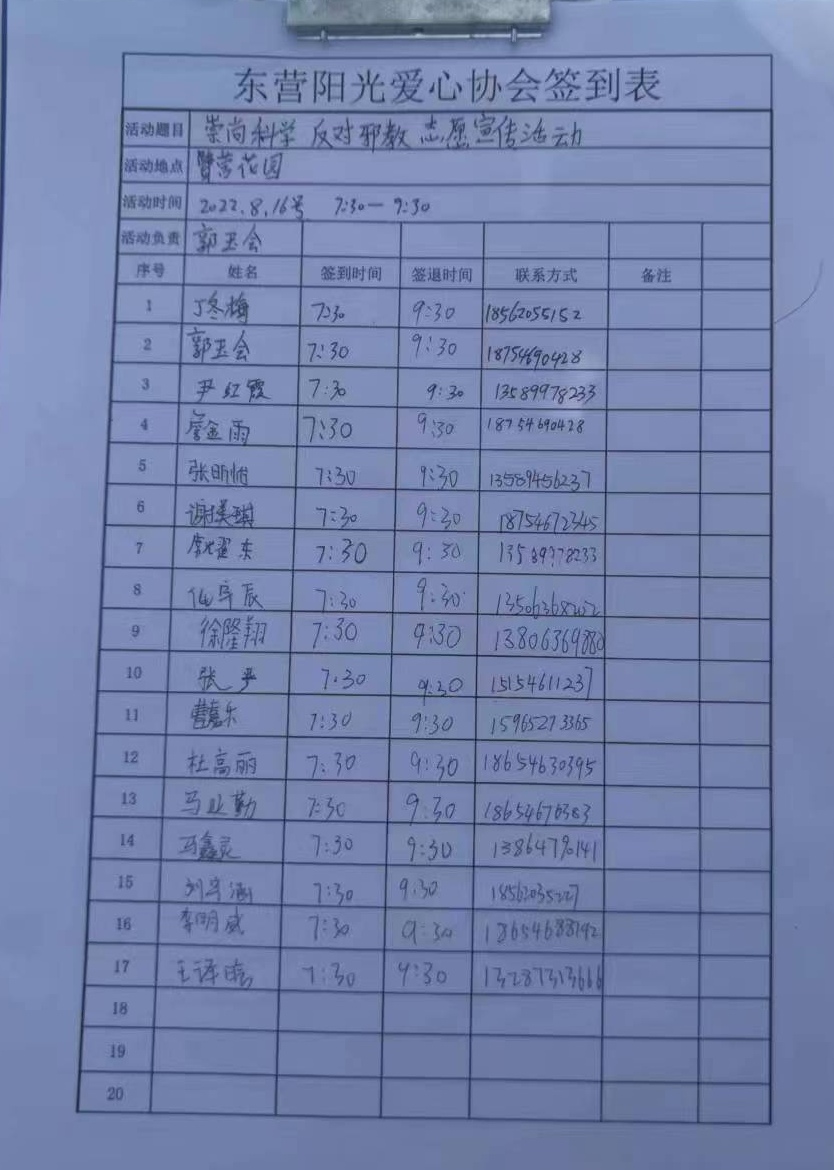 东营阳光爱心协会签到表
活动题目 崇尚科学 反对邪教 志愿宣传活动
活动地点 营花园
活动时间 2022.8.16号 7:30一9:30
活动负责 郭玉会
序号 姓名 签到时间 签退时间 联系方式 备注
1 丁冬梅 7:30 9:30 18562055152
2 郭玉会 7:30 9:30 18754690428
3 尹红霞 7:30 9:30 13589978233
4 詹金雨 7:30 9:30 18754690428
5 张昕怡 7:30 9:30 13589456237
6 谢瑛琪 7:30 9:30 18754672345
7 东 7:30 9:30 13589978233
8 伍宇辰 7:30 9:30
9 徐隆翔 7:30 9:30 13806369880
10 张 7:30 9:30 15154611237
11 曹嘉乐 7:30 9:30 15965273365
12 杜高丽 7:30 9:30 18654630395
13 马业勤 7:30 9:30 18654676383
14 马鑫灵 7:30 9:30
15 刘宇涵 7:30 9:30
16 李明威 7:30 9:30 18654688142
17 王译晗 7:30 9:30 13287313666
18
19
20